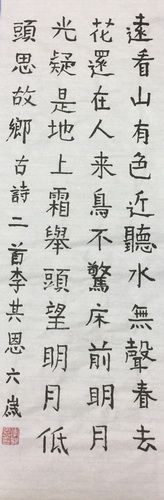 遠看山有色近聽水無聲春去
花還在人来鳥不驚床前明月
光疑是地上霜舉頭望明月低
頭思故鄉古詩二首李其恩六歲